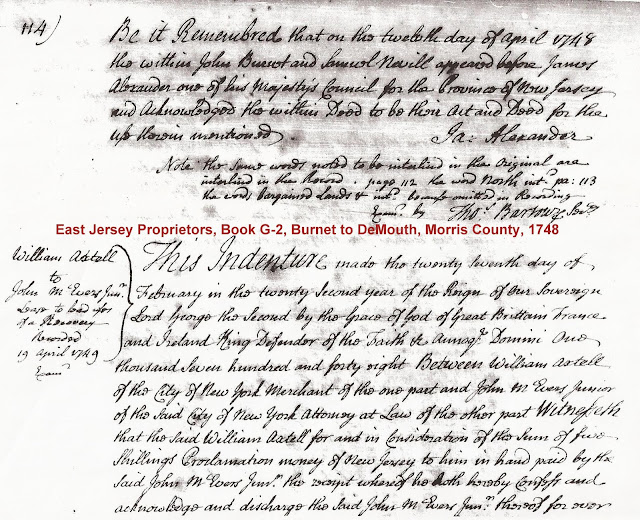 114)
Be it Remembred that on the twelfth day of April 1748
the within John Burnet and Samuel Nevill appeared before James
Alexander one of his Majestys Council for the Province of New Jersey
and Acknowledged the within Deed to be their Act and Deed for the
use therein mentioned Ja: Alexander
Note the same words noted to be interlin'd in the Original are
interlin'd in the Record. page 112 the word North intd. pa: 113
the words bargained Lands & intd. being omitted in Recording
Examd. by Thos. Bartow
East Jersey Proprietors, Book G-2, Burnet to DeMouth, Morris County, 1748
William Axtell
to
John McEvers Junr.
Lease to lead uses
of a Recovery
Recorded
19 April 1749
Examd.
This Indenture made the twenty seventh day of
February in the twenty Second year of the Reign of Our Sovereign
Lord George the Second by the Grace of God of Great Brittain France
and Ireland King Defender of the Faith & Annoqe. Domini One
thousand Seven hundred and forty eight Between William Axtell
of the City of New York Merchant of the one part and John McEvers Junior
of the Said City of New York Attorney at Law of the other part Witnesseth
that the Said William Axtell for and in Consideration of the Sum of five
Shillings Proclamation money of New Jersey to him in hand paid by the
Said John McEvers Junr. the receipt whereof he doth hereby Confess and
acknowledge and discharge the Said John McEvers Junr. thereof for ever